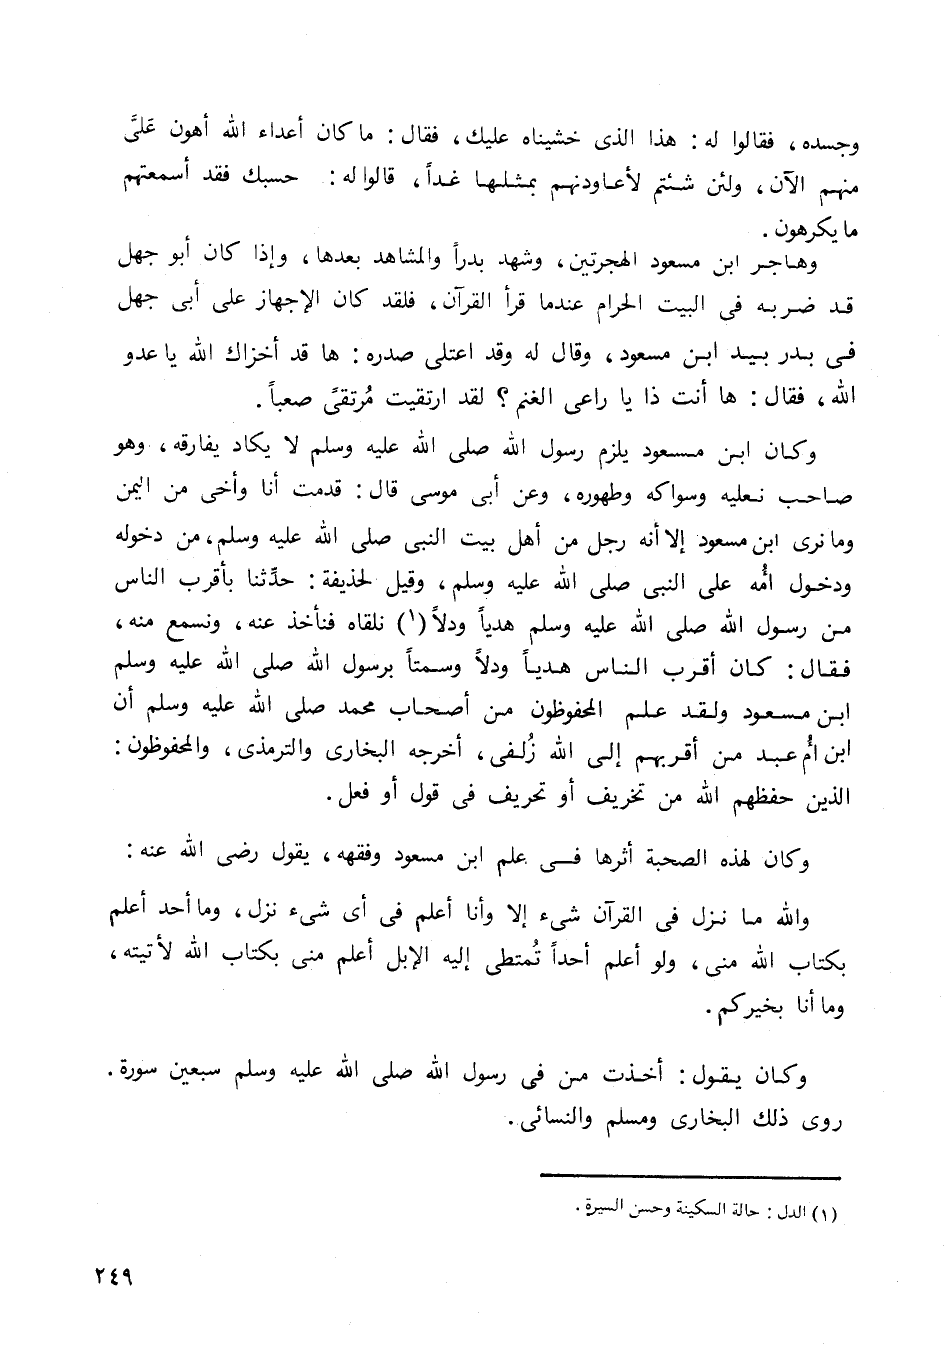 وجسده ، فقالوا له : هذا الذى خشيناه عليك ، فقال : ما كان أعداء الله أهون عَلىَّ
منهم الآن ، ولئن شئتم لأعاودنهم بمثلها غداً ، قالوا له : حسبك فقد أسمعتهم
ما يكرهون .
وهاجر ابن مسعود الهجرتين ، وشهد بدراً والمشاهد بعدها ، وإذا كان أبو جهل
قد ضربه فى البيت الحرام عندما قرأ القرآن ، فلقد كان الإجهاز على أبى جهل
فى بدر بيد ابن مسعود ، وقال له وقد اعتلى صدره : ها قد أخزاك الله يا عدو
الله ، فقال : ها أنت ذا يا راعى الغنم ؟ لقد ارتقيت مُرتقىً صعباً .
وكان ابن مسعود يلزم رسول الله صلى الله عليه وسلم لا يكاد يفارقه ، وهو
صاحب نعليه وسواكه وطهوره ، وعن أبى موسى قال : قدمت أنا وأخى من اليمن
وما نرى ابن مسعود إلا أنه رجل من أهل بيت النبى صلى الله عليه وسلم ، من دخوله
ودخول أُمه على النبى صلى الله عليه وسلم ، وقيل لحذيفة : حدِّثنا بأقرب الناس
من رسول الله صلى الله عليه وسلم هدياً ودلاً (١) نلقاه فنأخذ عنه ، ونسمع منه ،
فقال : كان أقرب الناس هدياً ودلاً وسمتاً برسول الله صلى الله عليه وسلم
ابن مسعود ولقد علم المحفوظون من أصحاب محمد صلى الله عليه وسلم أن
ابن أُم عبد من أقربهم إلى الله زُلفى ، أخرجه البخارى والترمذى ، والمحفوظون :
الذين حفظهم الله من تخريف أو تحريف فى قول أو فعل .
وكان لهذه الصحبة أثرها فى علم ابن مسعود وفقهه ، يقول رضى الله عنه :
والله ما نزل فى القرآن شىء إلا وأنا أعلم فى أى شىء نزل ، وما أحد أعلم
بكتاب الله منى ، ولو أعلم أحداً تُمتطى إليه الإبل أعلم منى بكتاب الله لأتيته ،
وما أنا بخيركم .
وكان يقول : أخذت من فى رسول الله صلى الله عليه وسلم سبعين سورة .
روى ذلك البخارى ومسلم والنسائى .
(١) الدل : حالة السكينة وحسن السيرة .
٢٤٩